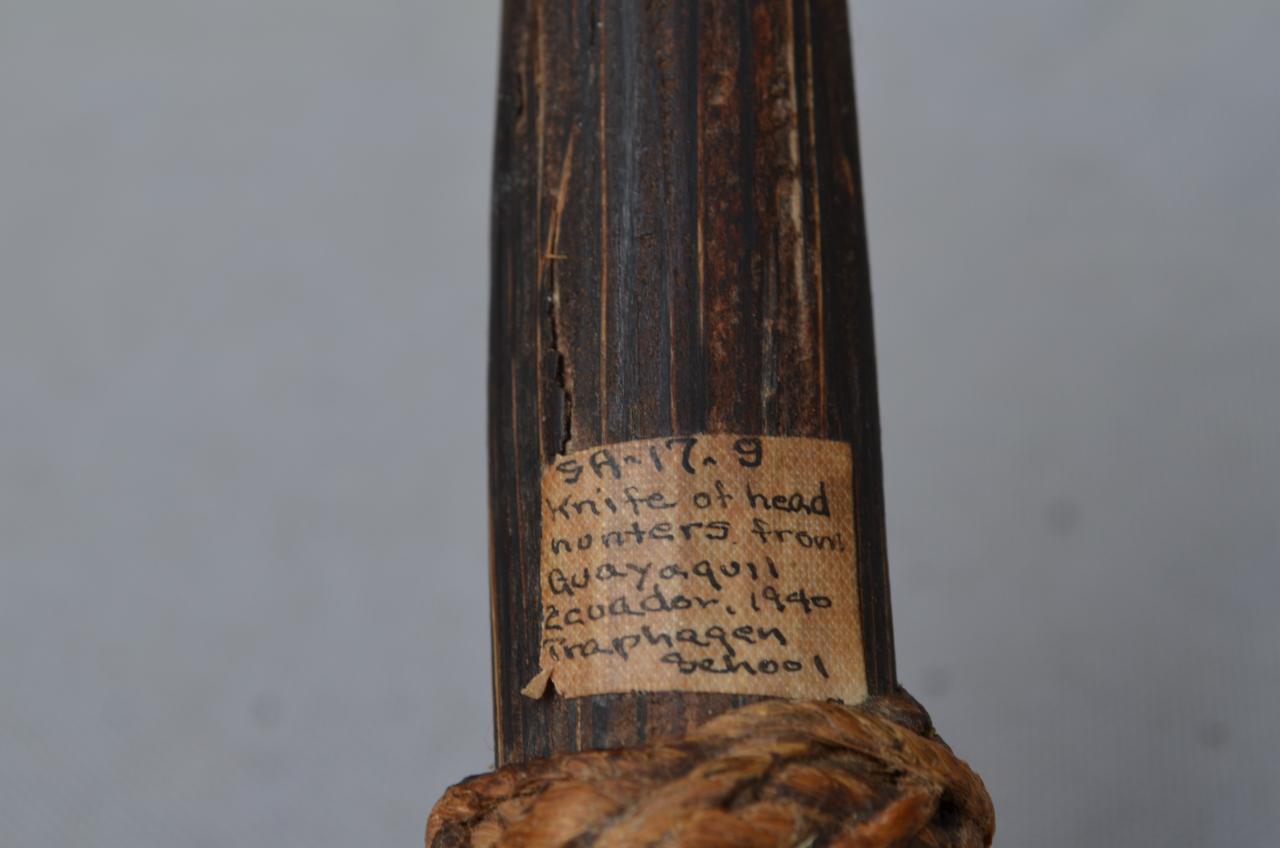 SA-17.9
Knife of head
hunters from
Guayaquil
Ecuador, 1940
Traphagen
School